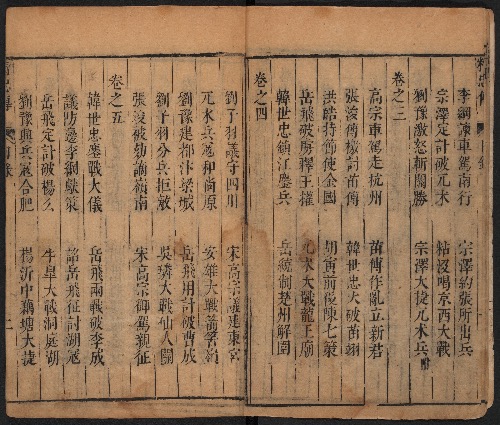 李綱諫車駕南行 宗澤約張所出兵
宗澤定計破兀朮 粘沒喝京西大戰
劉豫激怒斬關勝 宗澤大捷兀朮兵
卷之三
高宗車駕走杭州 苗傅作亂立新君
張浚傳檄討苗傅 韓世忠大破苗翊
洪皓持節使金國 胡寅前後陳七策
岳飛破虜釋王權 兀朮大戰龍王廟
韓世忠鎮江鏖兵 岳統制楚州解圍
卷之四
劉子羽議守四川 宋高宗議建東宮
兀朮兵寇和尚原 安雄大戰箭筈嶺
劉豫建都汴梁城 岳飛用計破曹成
劉子羽分兵拒敵 吳璘大戰仙人關
張浚被劾謫嶺南 宋高宗御駕親征
卷之五
韓世忠鏖戰大儀 岳飛兩戰破李成
議防邊李綱獻策 詔岳飛征討湖寇
岳飛定計破楊么 牛皋大戰洞庭湖
劉豫興兵寇合肥 楊沂中藕塘大捷